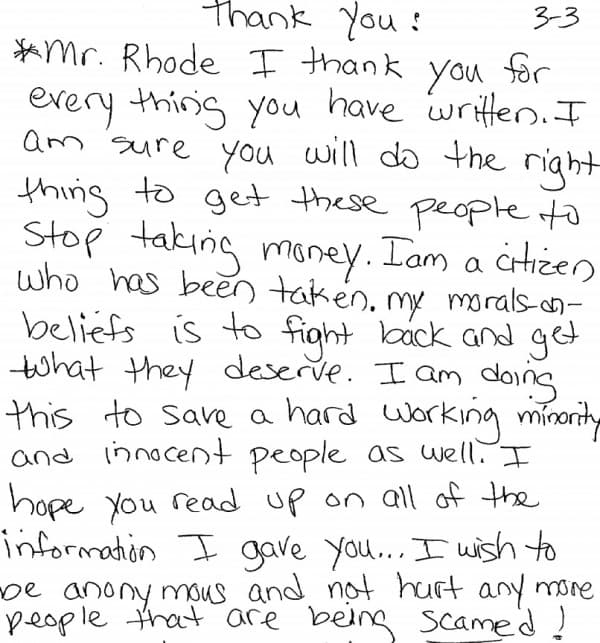 Thank you: 3-3
*Mr. Rhode I thank you for
every thing you have written. I
am sure you will do the right
thing to get these people to
Stop taking money. I am a citizen
who has been taken. my morals-on-
beliefs is to fight back and get
what they deserve. I am doing
this to save a hard working minority
and innocent people as well. I
hope you read up on all of the
information I gave you... I wish to
be anonymous and not hurt any more
people that are being scamed!